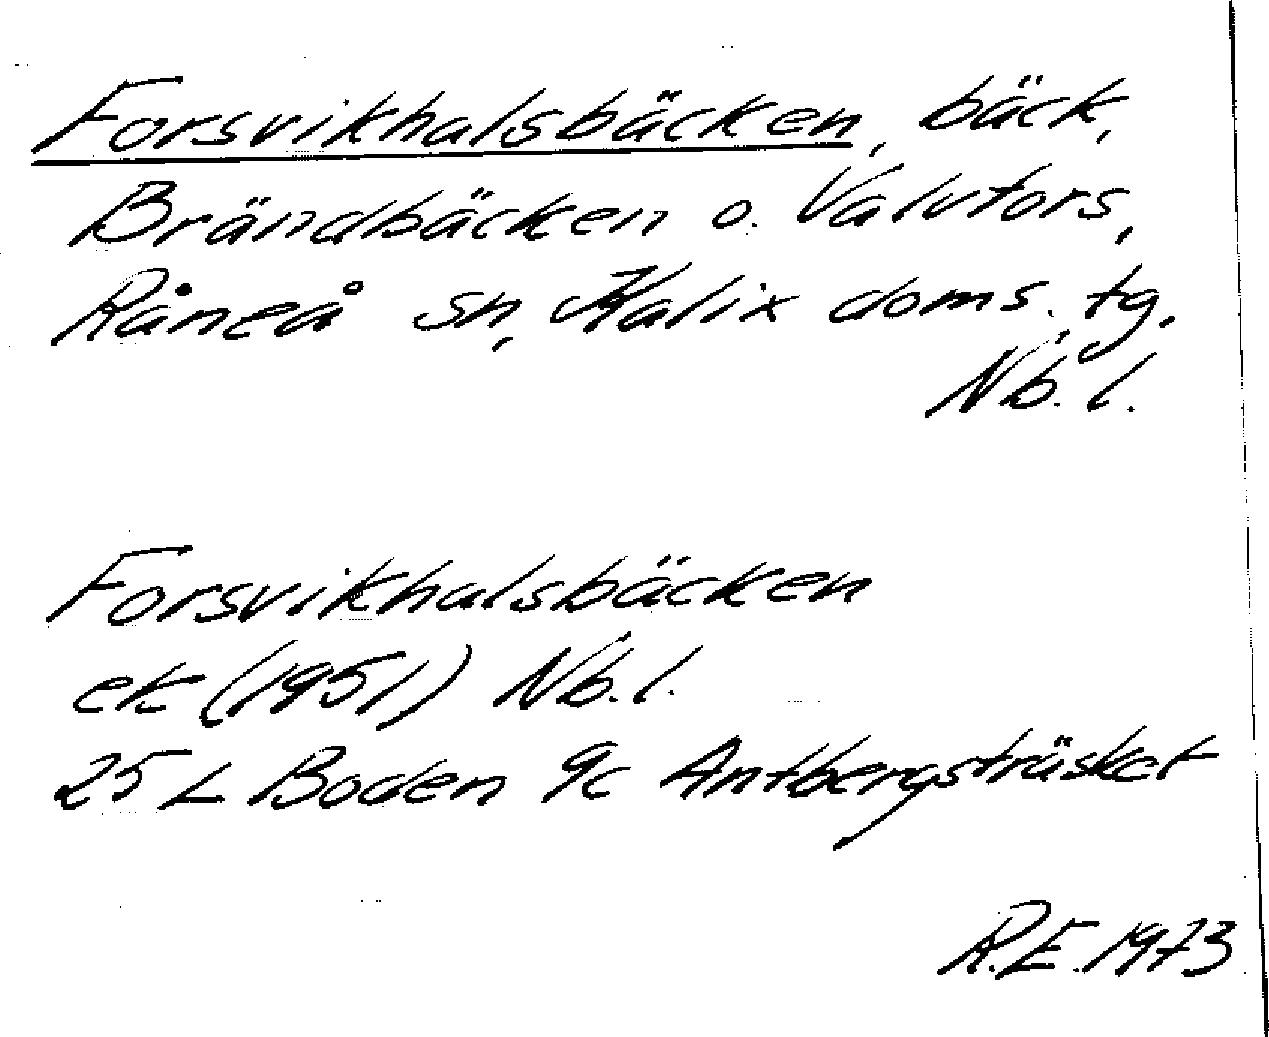 Forsvikhalsbäcken, bäck,
Brändbäcken o. Valvfors,
Råneå sn, Kalix doms. tg.
Nb. l.
Forsvikhalsbäcken
ek (1951) Nb. l.
25 L Boden 9c Antbergsträsket
R.E. 1973